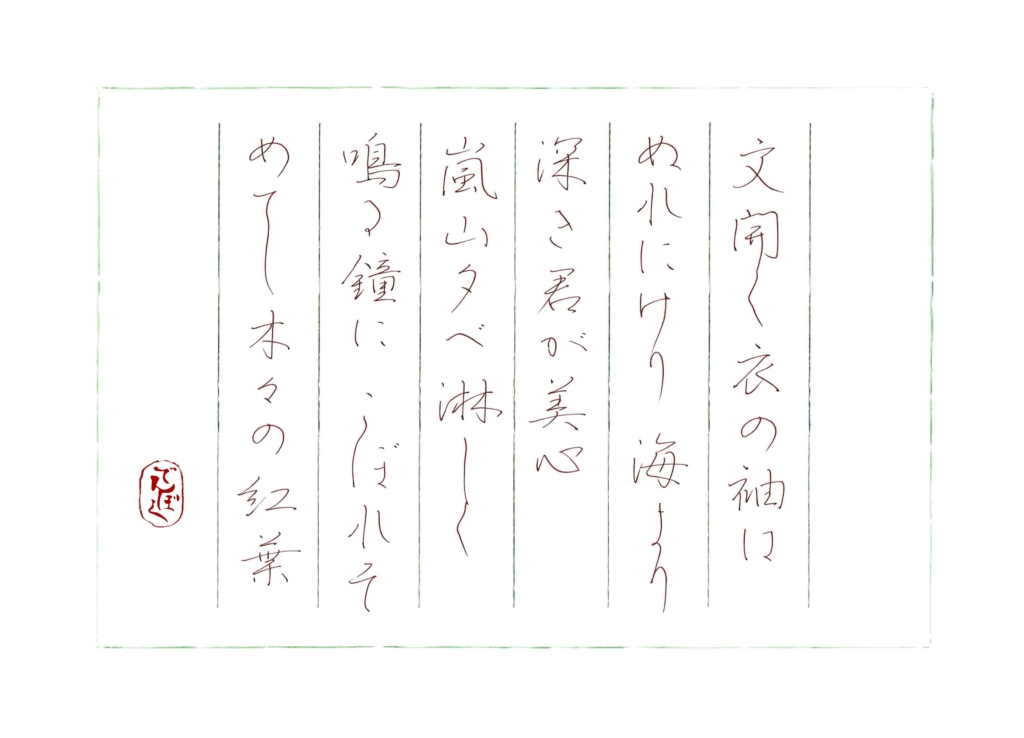 文開く衣の袖は
ぬれにけり 海より
深き君が美心
嵐山夕べ淋しく
鳴る鐘に こぼれそ
めてし木々の紅葉
でんぼく